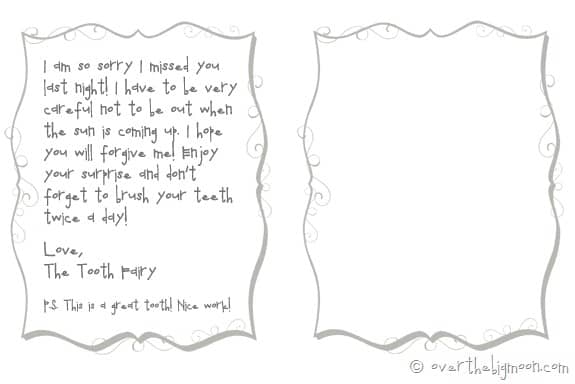 I am so sorry I missed you
last night! I have to be very
careful not to be out when
the sun is coming up. I hope
you will forgive me! Enjoy
your surprise and don't
forget to brush your teeth
twice a day!
Love,
The Tooth Fairy
P.S. This is a great tooth! Nice work!
© overthebigmoon.com